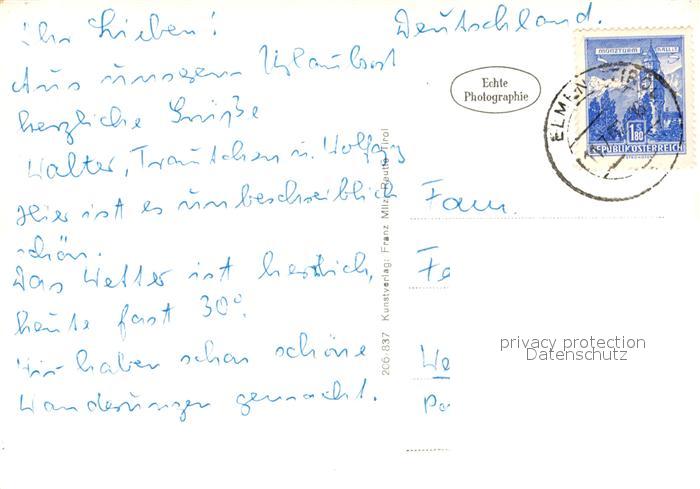 Ihr Lieben!
Aus unserem Urlaubsort
herzliche Grüße
Walter, Trautchen u. Wolfgang
Hier ist es unbeschreiblich
schön.
Das Wetter ist herrlich,
heute fast 30°.
Wir haben schon schöne
Wanderungen gemacht.
Deutschland.
Echte
Photographie
MÜNZTURM
HALL I. T.
S 1.80
REPUBLIK ÖSTERREICH
ELMEN, TIROL
206-837 Kunstverlag: Franz Milz, Reutte Tirol
Fam.
Fe
We
Po
privacy protection
Datenschutz